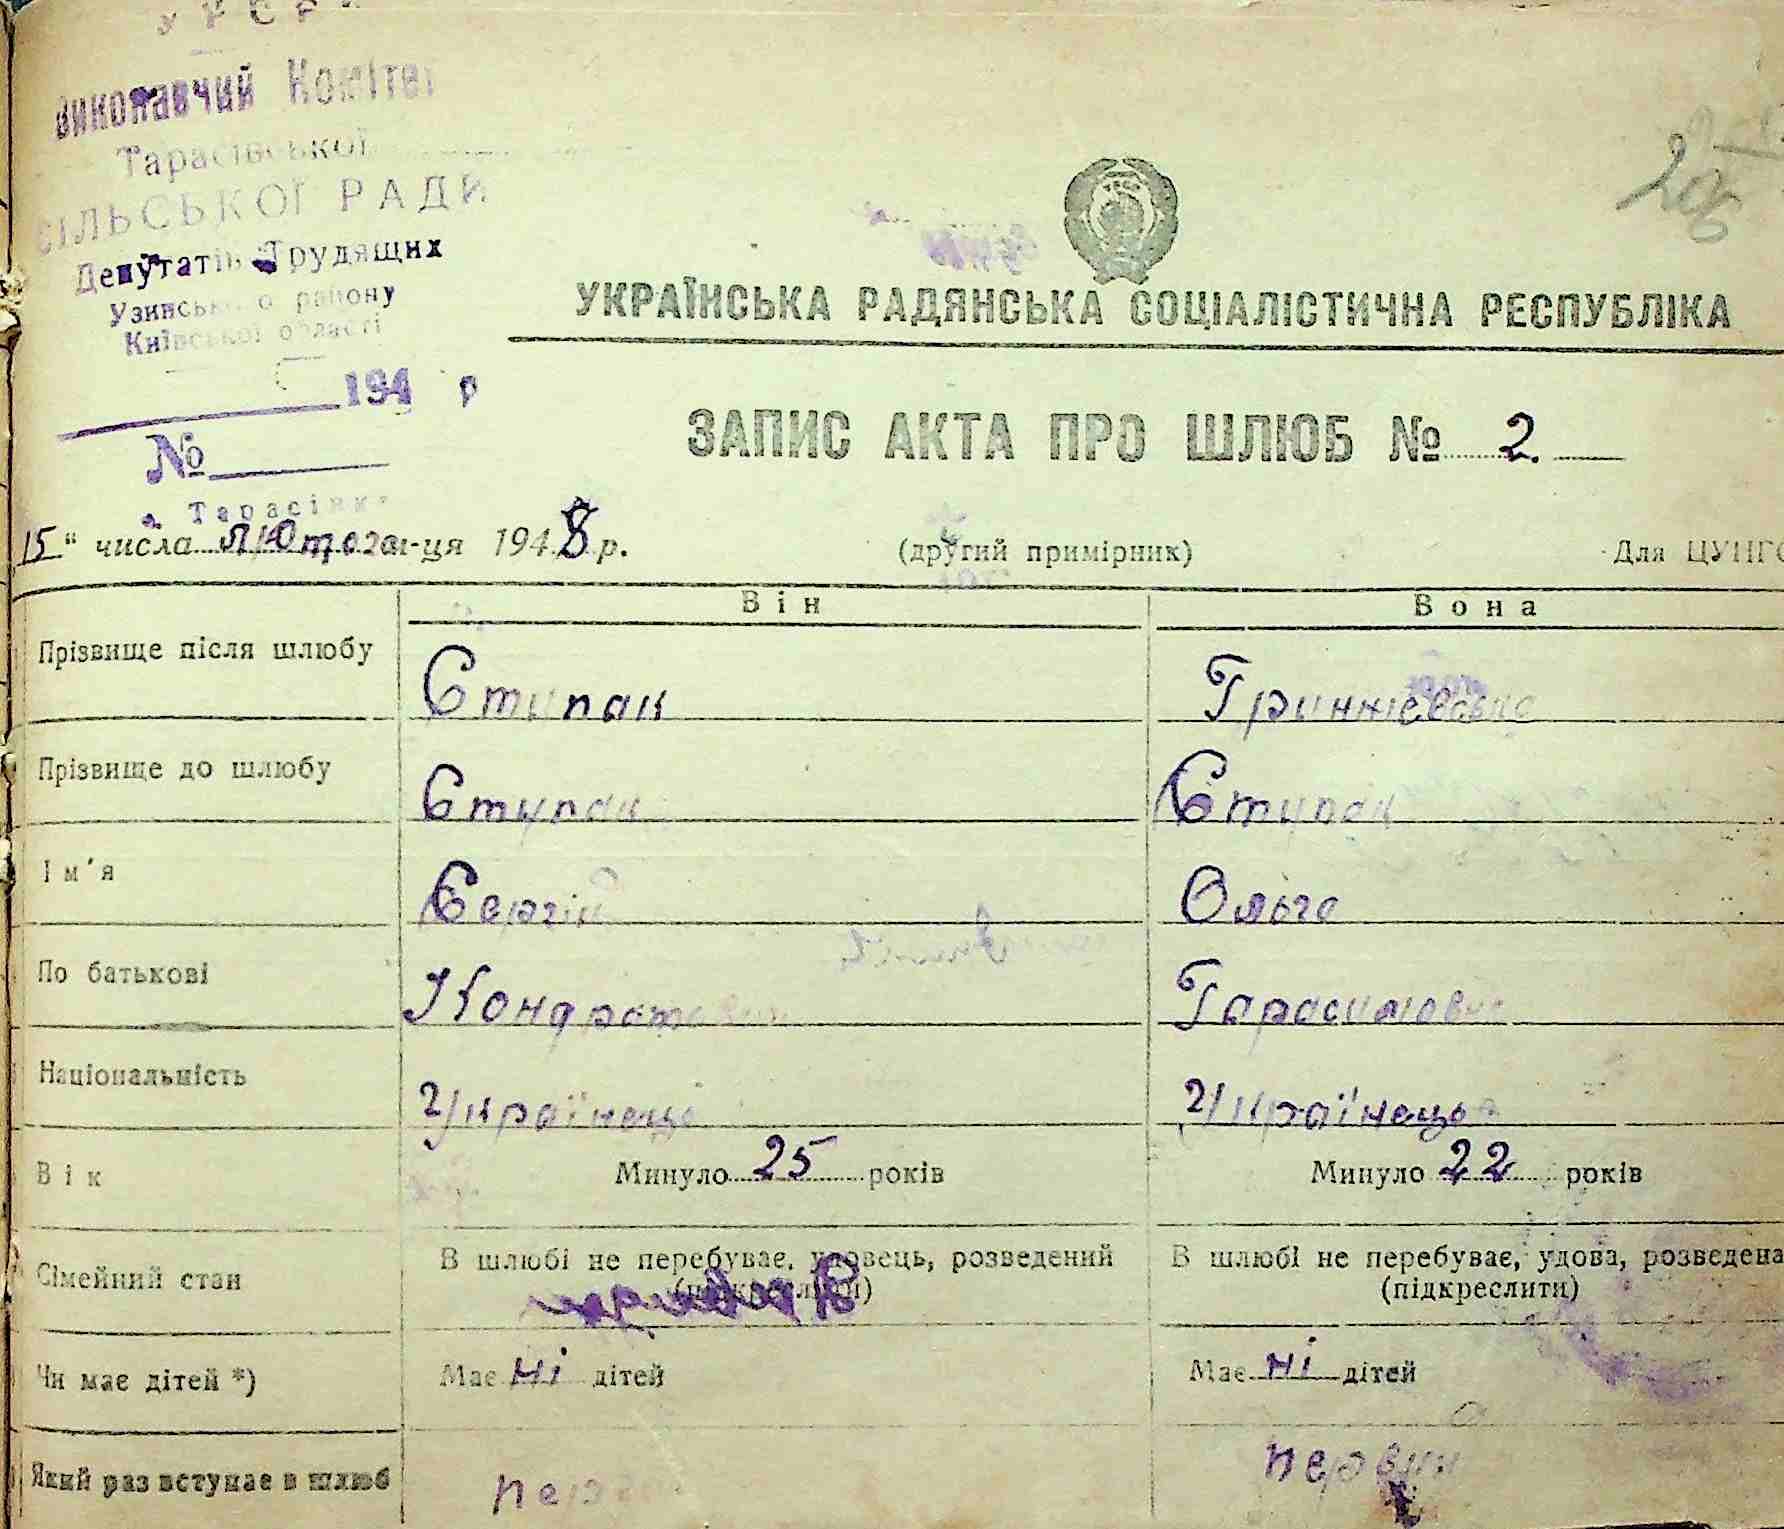 УРСР
Виконавчий Комітет
Тарасівської
СІЛЬСЬКОЇ РАДИ
Депутатів Трудящих
Узинського району
Київської області
194 р
№
с. Тарасівка
206
УКРАЇНСЬКА РАДЯНСЬКА СОЦІАЛІСТИЧНА РЕСПУБЛІКА
ЗАПИС АКТА ПРО ШЛЮБ № 2.
15" числа лютого м-ця 1948 р. (другий примірник) Для ЦУНГО
Він Вона
Прізвище після шлюбу Ступак Гринчевська
Прізвище до шлюбу Ступак Ступак
Ім'я Сергій Ольга
По батькові Кондратович Гарасимовна
Національність Українець Українецька
Вік Минуло 25 років Минуло 22 років
Сімейний стан В шлюбі не перебуває, удовець, розведений (підкреслити) В шлюбі не перебуває, удова, розведена (підкреслити)
Чи має дітей *) Має ні дітей Має ні дітей
Який раз вступає в шлюб первий